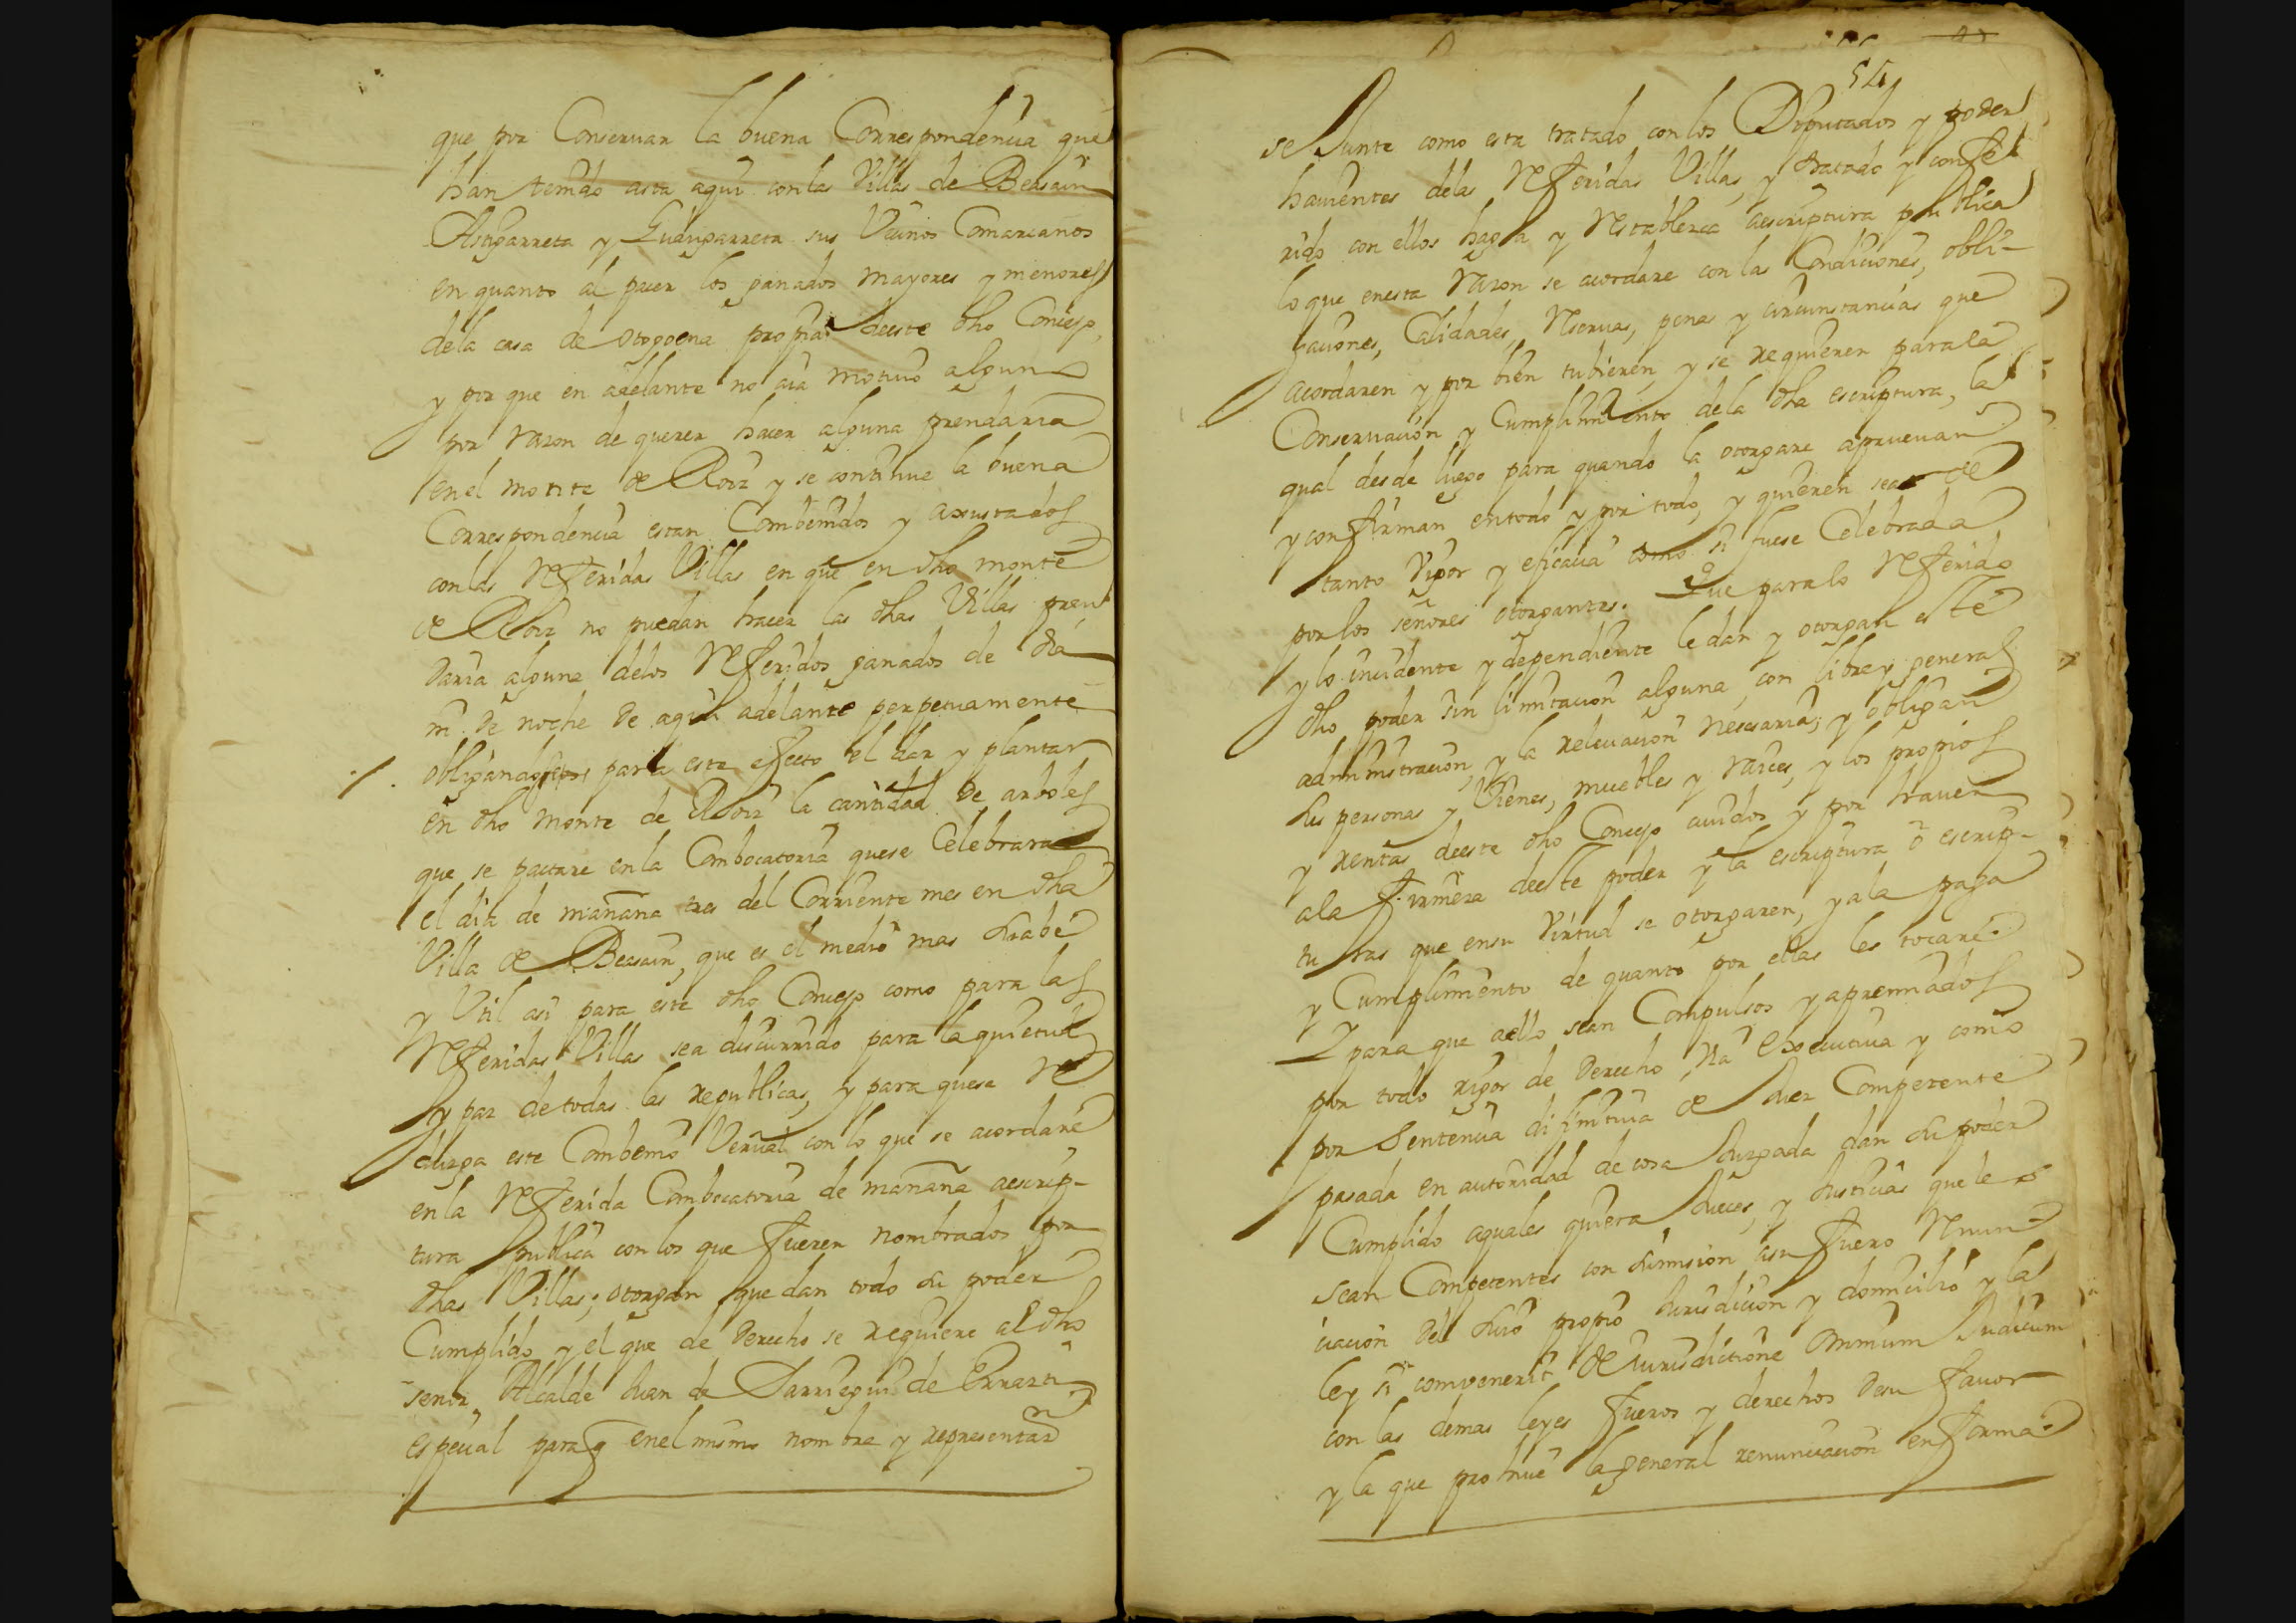 que por Conseruar la buena Correspondencia que
han tenido asta aqui con las Villas de Beasain
Astigarreta y Gudugarreta sus Vecinos Comarcanos
en quanto al pacer los ganados mayores y menores
dela casa de otogoena propia deeste dho Concejo,
y por que en adelante no aia motiuo alguno
por razon de querer hacer alguna prendaria
enel monte de Roiz y se continue la buena
Correspondencia estan Combenidos y axustados
con las Referidas Villas en que en dho monte
de Roiz no puedan hacer las dhas Villas pren
daria alguna delos Referidos ganados de dia
ni de noche de aqui adelante perpetuamente
obligandose para este efecto el dar y plantar
en dho monte de Roiz la cantidad de arboles
que se pactare enla Combocatoria quese Celebrara
el dia de mañana tres del Corriente mes en dha
Villa de Beasain, que es el medio mas suabe
y Util asi para este dho Concejo como para las
Referidas Villas sea discurrido para la quietud
y paz detodas las republicas, y para quese re
duzga este Combenio Verual con lo que se acordare
enla Referida Combocatoria de mañana aescrip-
tura publica con los que fueren nombrados por
dhas Villas; otorgan que dan todo su poder
Cumplido y el que de derecho se requiere al dho
señor Alcalde Juan de Sarriegui de
especial para q enel mismo nombre y represent.on
54
se Junte como esta tratado con los Diputados y poder
hauientes delas Referidas Villas, y tratado y confe
rido con ellos haga y Restablezca aescriptura publica
lo que enesta razon se acordare con las Condiciones, obli-
gaciones, Calidades, Reseruas, penas y circunstancias que
acordaren y por bien tubieren y se requieren parala
Conseruacion y Cumplimiento dela dha escriptura, la
qual desde luego para quando la otorgare aprueuan
y confirman entodo y por todo, y quieren sea de
tanto Vigor y eficacia como si fuese Celebrada
por los señores otorgantes. Que paralo Referido
y lo incidente y dependiente le dan y otorgan este
dho poder sin limitacion alguna con libre y general
administracion y la releuacion necesaria; y obligan
sus personas y Vienes, muebles y raices, y los propios
y rentas deeste dho Concejo auidos y por hauer
ala firmeza deeste poder y la escriptura ō escrip-
turas que ensu Virtud se otorgaren, yala paga
y Cumplimiento de quanto por ellas les tocare.
Y para que aello sean Compulsos y apremiados
por todo rigor de derecho Via Executiua y como
por Sentencia difinitiua de Juez Competente
pasada en autoridad de cosa Juzgada dan su poder
Cumplido aquales quiera Jueces, y Justicias que les
sean Competentes con sumision asu fuero Renun
ciacion del suio propio Jurisdicion y domicilio y la
ley si convenerit de Jurisdictione omnium Judicum
con las demas leyes fueros y derechos desu fauor
y la que prohiue la general renunciacion en forma.